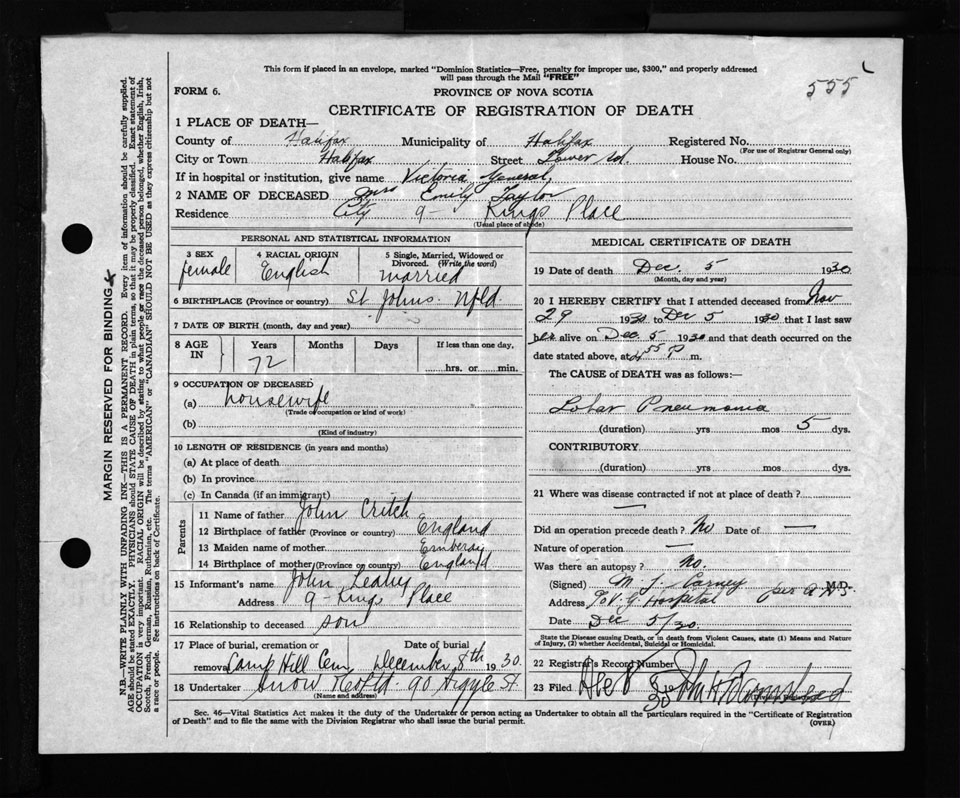 This form if placed in an envelope, marked "Dominion Statistics—Free, penalty for improper use, $300," and properly addressed
will pass through the Mail "FREE"
555
FORM 6.
PROVINCE OF NOVA SCOTIA
CERTIFICATE OF REGISTRATION OF DEATH
1 PLACE OF DEATH—
County of Halifax Municipality of Halifax Registered No.
(For use of Registrar General only)
City or Town Halifax Street Tower Rd. House No.
If in hospital or institution, give name Victoria General
2 NAME OF DECEASED Mrs Emily Taylor
Residence City 9- Kings Place
(Usual place of abode)
PERSONAL AND STATISTICAL INFORMATION
3 SEX 4 RACIAL ORIGIN 5 Single, Married, Widowed or
Divorced. (Write the word)
female English married
6 BIRTHPLACE (Province or country) St Johns. Nfld.
7 DATE OF BIRTH (month, day and year)
8 AGE IN Years Months Days If less than one day,
72 hrs. or min.
9 OCCUPATION OF DECEASED
(a) housewife
(Trade or occupation or kind of work)
(b)
(Kind of industry)
10 LENGTH OF RESIDENCE (in years and months)
(a) At place of death
(b) In province
(c) In Canada (if an immigrant)
Parents
11 Name of father John Critch
12 Birthplace of father (Province or country) England
13 Maiden name of mother
14 Birthplace of mother (Province or country) England
15 Informant's name John Leahy
Address 9-Kings Place
16 Relationship to deceased son
17 Place of burial, cremation or Date of burial
removal Camp Hill Cem December 8th 1930.
18 Undertaker Snow & Co Ltd. 90 Argyle St
(Name and address)
MEDICAL CERTIFICATE OF DEATH
19 Date of death Dec. 5 1930
(Month, day and year)
20 I HEREBY CERTIFY that I attended deceased from Nov
29 1930 to Dec 5 1930 that I last saw
her alive on Dec 5 1930 and that death occurred on the
date stated above, at 4 55 P m.
The CAUSE of DEATH was as follows:—
Lobar Pneumonia
(duration) yrs mos 5 dys.
CONTRIBUTORY
(duration) yrs mos dys.
21 Where was disease contracted if not at place of death?
—
Did an operation precede death? No Date of —
Nature of operation —
Was there an autopsy? No.
(Signed) M. J. Carney M.D.
Address V. G. Hospital
Date Dec 5/30.
State the Disease causing Death, or in death from Violent Causes, state (1) Means and Nature
of Injury, (2) whether Accidental, Suicidal or Homicidal.
22 Registrar's Record Number
23 Filed Dec 8 30
Sec. 46—Vital Statistics Act makes it the duty of the Undertaker or person acting as Undertaker to obtain all the particulars required in the "Certificate of Registration
of Death" and to file the same with the Division Registrar who shall issue the burial permit.
(OVER)
MARGIN RESERVED FOR BINDING
N.B.—WRITE PLAINLY WITH UNFADING INK—THIS IS A PERMANENT RECORD. Every item of information should be carefully supplied.
AGE should be stated EXACTLY. PHYSICIANS should STATE CAUSE OF DEATH in plain terms, so that it may be properly classified. Exact statement of
OCCUPATION is very important. RACIAL ORIGIN will be described by stating to what people or race the deceased person belonged, whether English, Irish,
Scotch, French, German, Russian, Ruthenian, etc. The terms "AMERICAN" or "CANADIAN" SHOULD NOT BE USED as they express citizenship but not
a race or people. See instructions on back of Certificate.